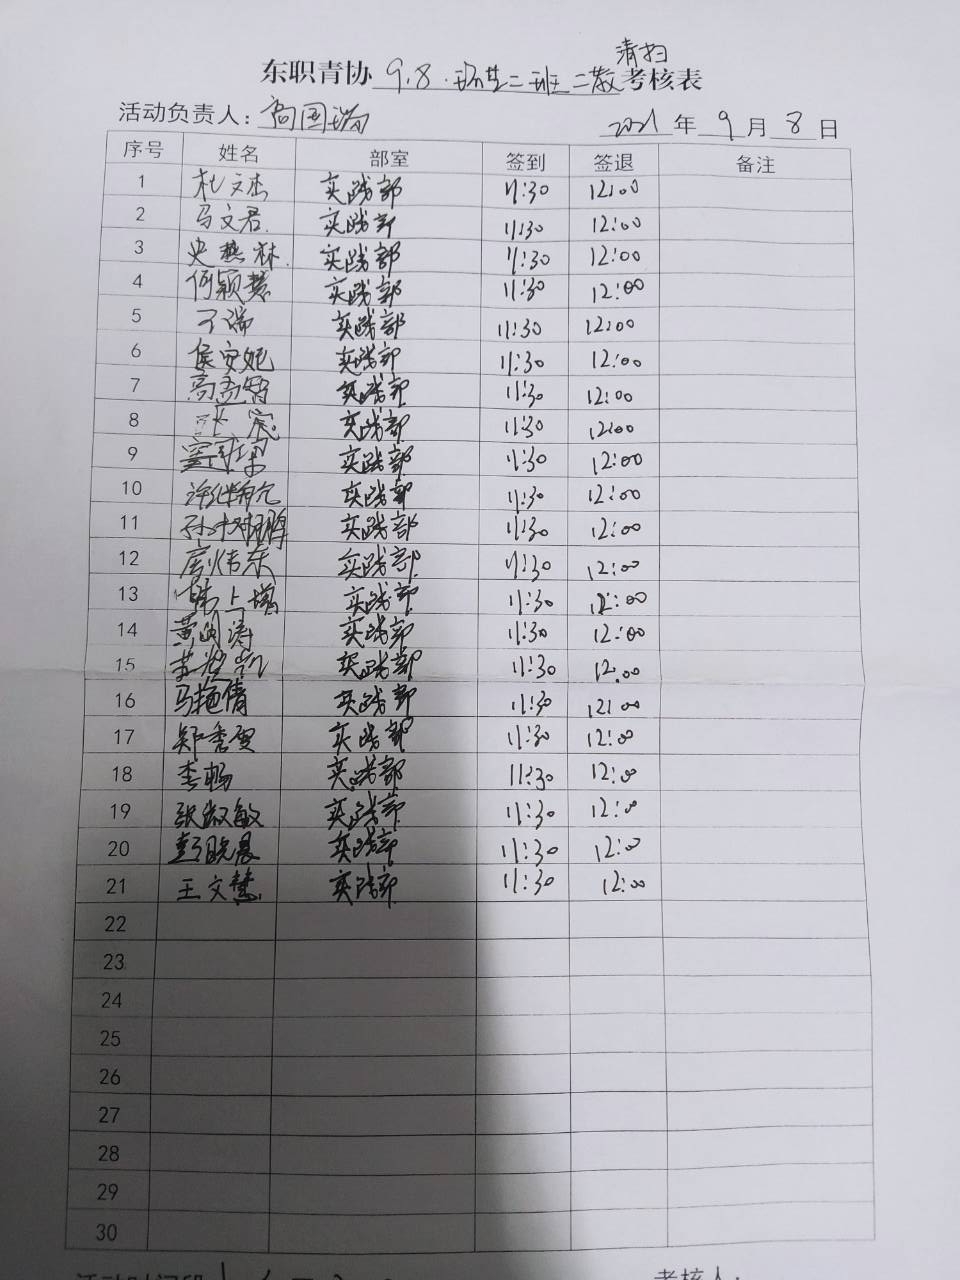 清扫
东职青协 9.8. 班二散考核表
活动负责人：高国瑞 2021 年 9 月 8 日
序号 姓名 部室 签到 签退 备注
1 杜文杰 实践部 11:30 12:00
2 马文君 实践部 11:30 12:00
3 史燕林 实践部 11:30 12:00
4 何颖慧 实践部 11:30 12:00
5 实践部 11:30 12:00
6 侯安妮 实践部 11:30 12:00
7 高孟智 实践部 11:30 12:00
8 实践部 11:30 12:00
9 实践部 11:30 12:00
10 实践部 11:30 12:00
11 实践部 11:30 12:00
12 实践部 11:30 12:00
13 实践部 11:30 12:00
14 实践部 11:30 12:00
15 实践部 11:30 12:00
16 马艳倩 实践部 11:30 12:00
17 实践部 11:30 12:00
18 李畅 实践部 11:30 12:00
19 张淑敏 实践部 11:30 12:00
20 彭晓晨 实践部 11:30 12:00
21 王文慧 实践部 11:30 12:00
22
23
24
25
26
27
28
29
30